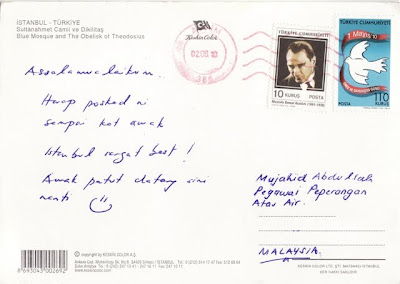 İSTANBUL - TÜRKİYE
Sultanahmet Camii ve Dikilitaş
Blue Mosque and The Obelisk of Theodosius
Keskin Color
02 06 10
TÜRKİYE CUMHURİYETİ
10 KURUŞ POSTA
TÜRKİYE CUMHURİYETİ
1 Mayıs
POSTA 110 KURUŞ
Assalamualaikum.
Harap poskad ni
sampai kat awak
Istanbul sangat best!
Awak patut datang sini
nanti
Mujahid Abdullah
Pegawai Peperangan
Atas Air.
MALAYSIA.
copyright by KESKİN COLOR A.Ş.
www.keskincolor.com
8 693043 002692